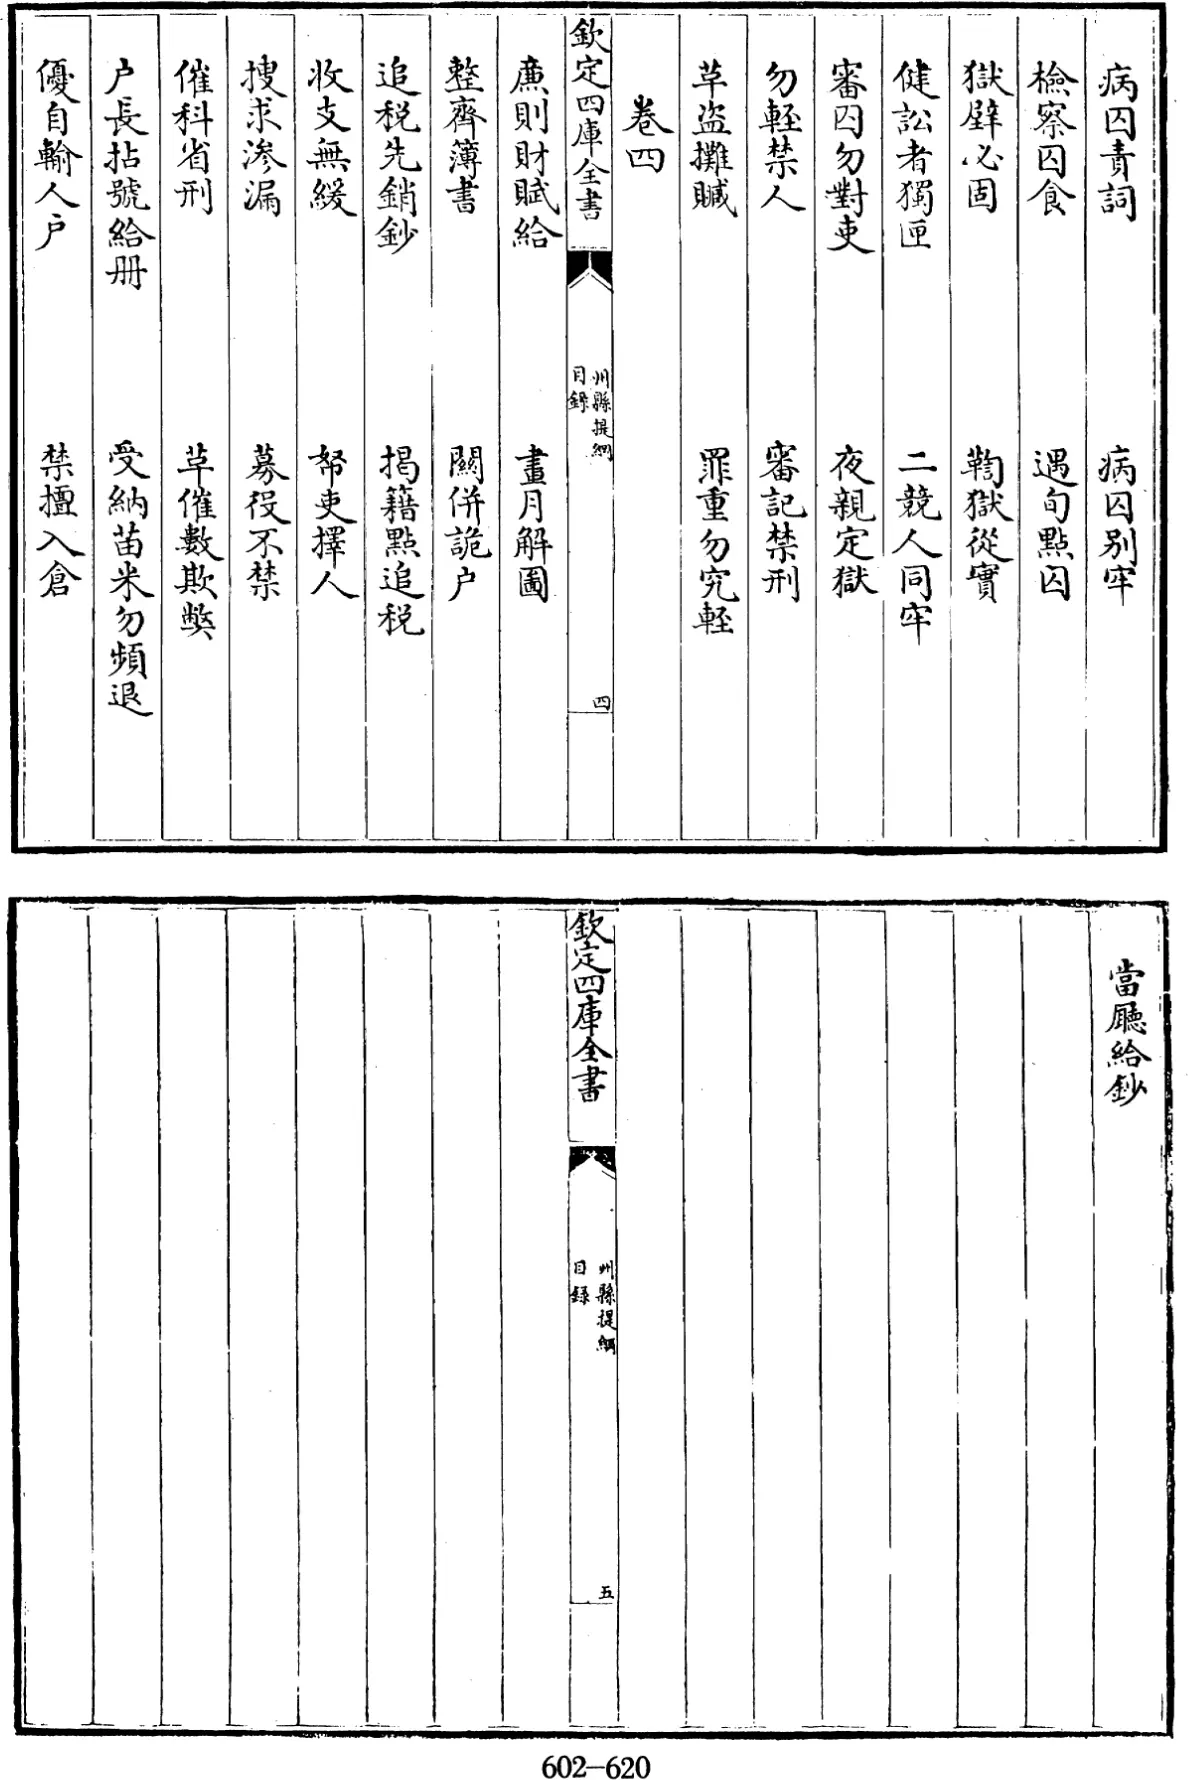 病囚責詞 病囚別牢
檢察囚食 遇旬點囚
獄壁必固 鞫獄從實
健訟者獨匣 二競人同牢
審囚勿對吏 夜親定獄
勿輕禁人 審記禁刑
草盜攤贓 罪重勿究輕
卷四
欽定四庫全書
州縣提綱
目錄
四
亷則財賦給 畫月解圖
整齊簿書 關併詭户
追税先銷鈔 揭籍點追税
收支無緩 帑吏擇人
搜求滲漏 募役不禁
催科省刑 草催數欺弊
户長拈號給册 受納苗米勿頻退
優自輸人户 禁擅入倉
當廳給鈔
欽定四庫全書
州縣提綱
目録
五
602-620